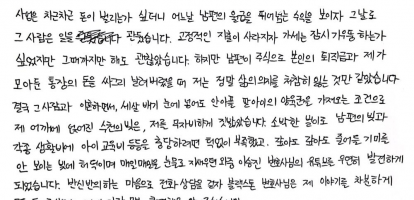 사업은 차근차근 돈이 벌리는가 싶더니 어느날 남편의 월급을 뛰어넘는 수익을 보이자 그날로
그 사람은 일을 관뒀습니다. 고정적인 지출이 사라지자 가세는 잠시 기우뚱 하는가
싶었지만 그때까지만 해도 괜찮았습니다. 하지만 남편이 주식으로 본인의 퇴직금과 제가
모아둔 통장의 돈을 싸그리 날려버렸을 때 저는 정말 삶의 의지를 처참히 잃는 것만 같았습니다.
결국 그 사람과 이혼하면서, 세살 배기 눈에 넣어도 안아플 딸아이의 양육권을 가져오는 조건으로
제 어깨에 얹어진 수천의 빚은, 저를 무자비하게 짓밟았습니다. 소박한 벌이로 남편의 빚과
각종 생활비에 아이 교육비 등등을 충당하려면 턱없이 부족했고. 갚아도 갚아도 줄어들 기미를
안 보이는 빚에 허덕이며 매일매일을 눈물로 지새우면 와중 이승진 변호사님의 유튜브를 우연히 발견하게
되었습니다. 반신반의하는 마음으로 전화 상담을 걸자 변호사님은 제 이야기를 차분하게